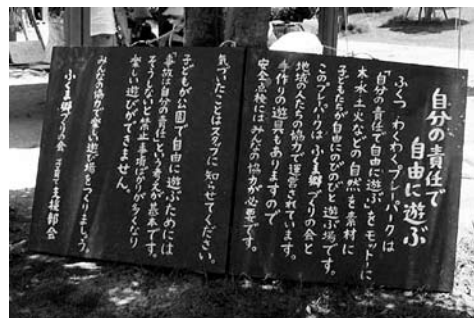 自分の責任で
自由に遊ぶ
ふくつ わくわくプレーパークは
「自分の責任で自由に遊ぶ」をモットーに
木水土火などの自然を素材に
子どもたちが自由にのびのびと遊ぶ場です。
このプレーパークは ふくま郷づくりの会と
地域の人たちの協力で運営されています。
手作りの遊具もありますので
安全点検にはみんなの協力が必要です。
気づいたことはスタッフに知らせてください。
子どもが公園で自由に遊ぶためには
「事故は自分の責任」という考えが基本です。
そうしないと禁止事項ばかりが多くなり
楽しい遊びができません。
みんなの協力で楽しい遊び場をつくりましょう。
ふくま郷づくりの会 子育て支援部会